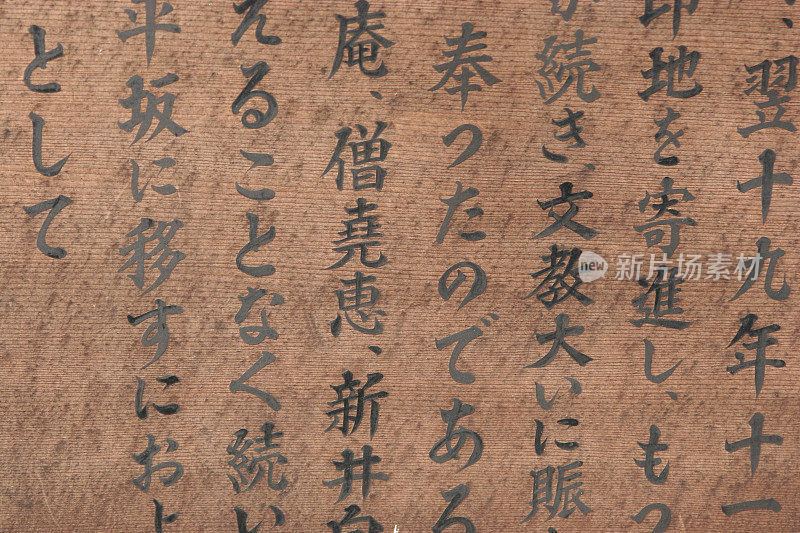 、翌十九年十一
印地を寄進し、もつ
続き、文教大いに賑
奉つたのである
庵、僧堯恵、新井白
えることなく続い
平坂に移すにおよ
として
new 新摄视界